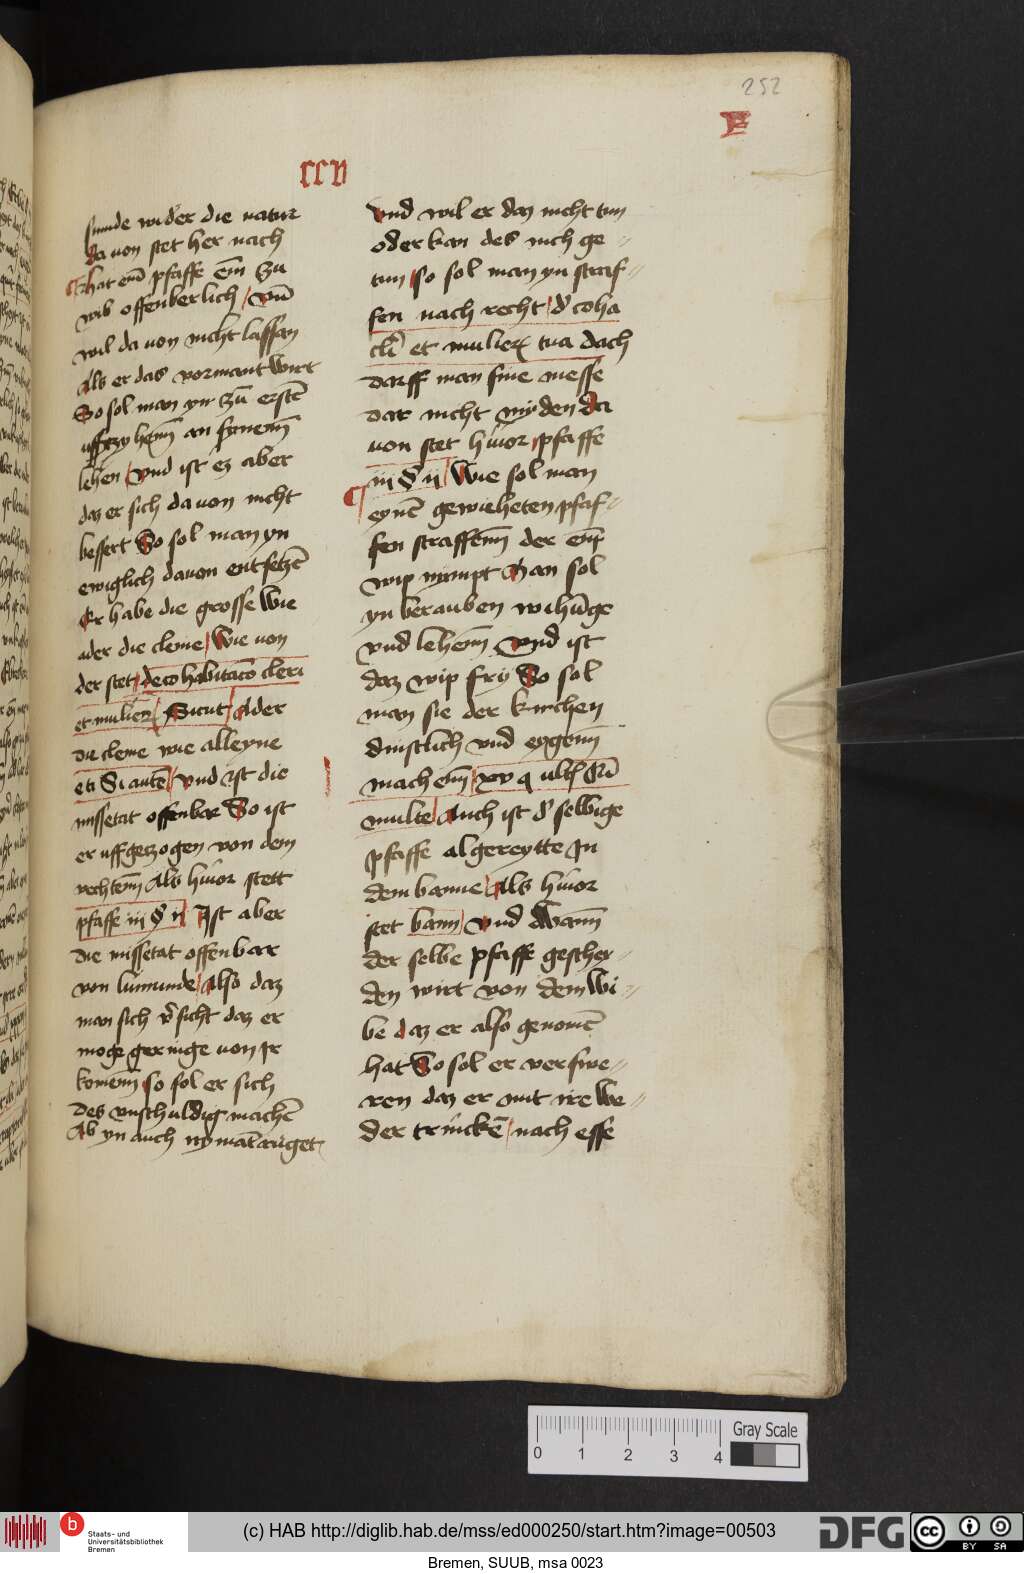 252
F
ccv
sunde wider die natur
da von stet her nach
hat em̄ pfaffe em̄ zu
wib offenberlich / vn̄
wil da von nicht lassan
Als er das vormant wirt
So sol man yn zū erstē
uffczyhenn̄ an synenn̄
lehen / Vnd ist ez aber
daz er sich da von nicht
bessert So sol man yn
ewiglich davon entsetzē
Er habe die grosse wie
ader die cleine / Wie von
der stet / de cohabitacō cleri
et mulier / Sicut / Ader
die cleine wie alleyne
eti Si autē / vnd ist die
missetat offenbar So ist
er uffgetzogen von dem
rechtenn̄ Als hiuor stett
pfaffe iij § ij Ist aber
die missetat offenbar
von lumunde / Also daz
man sich v̓sicht daz er
moge geringe von Ir
komenn̄ so sol er sich
des vnschuldig machē
Ab yn auch nymāt ruget
Vnd wil er daz nicht tun
oder kan des nich ge
tun / so sol man yn straf
fen nach recht / d̓ coha
cli̓ et mulier tua dach
darff man sine messe
dar nicht myden da
von stet hiuor pfaffe
iij § ij / Wie sol man
eynē gewieheten pfaf
fen straffenn̄ der em̄
wip nympt Man sol
yn berauben wihūge
vnd lehenn̄ Vnd ist
daz wip fry So sol
man sie der kirchen
dinstlich vnd eygenn̄
machenn̄ / xv q ult
multe / Auch ist d̓ selbige
pfaffe algereytte In
dem banne / Als hiuor
stet bann / Vnd Wann̄
der selbe pfaffe geschey
den wirt von dem wi
be daz er also genomē
hat So sol er verswe
ren daz er mit ire we
der trinckē / nach esse
Gray Scale
0 1 2 3 4
b
Staats- und
Universitätsbibliothek
Bremen
(c) HAB http://diglib.hab.de/mss/ed000250/start.htm?image=00503
DFG
cc
BY SA
Bremen, SUUB, msa 0023